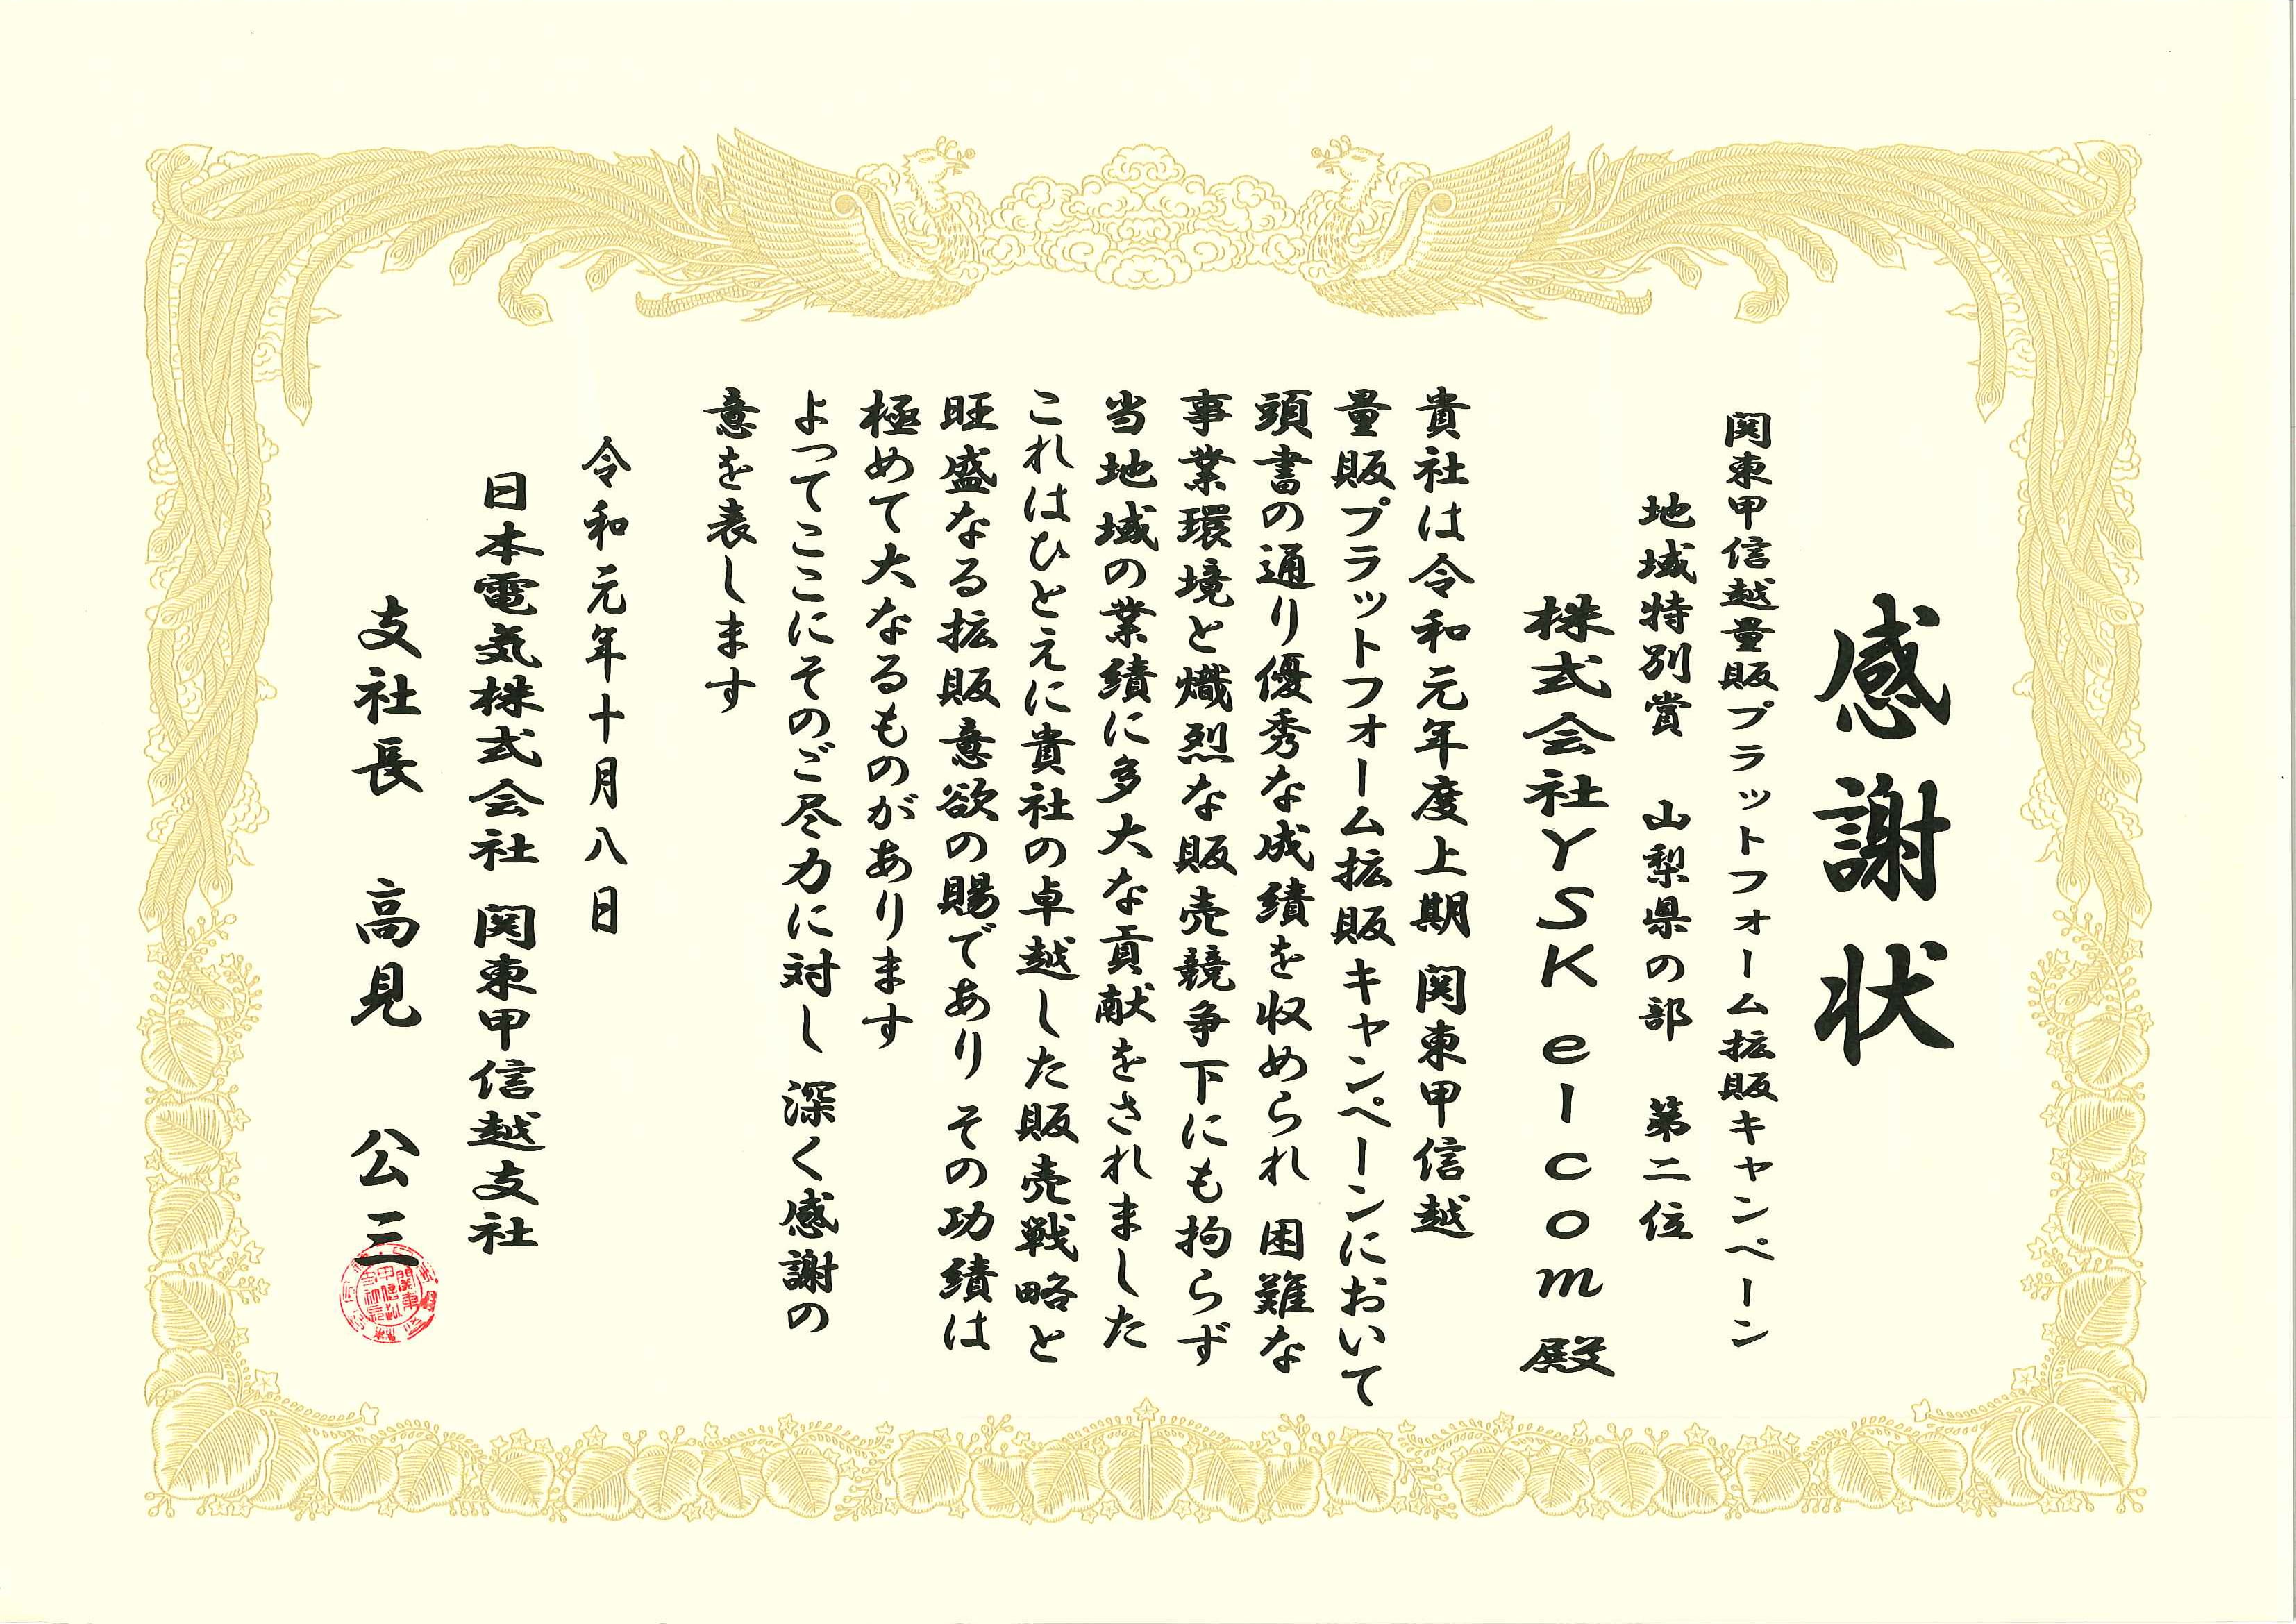 感謝状
関東甲信越量販プラットフォーム拡販キャンペーン
地域特別賞 山梨県の部 第二位
株式会社YSK elcom 殿
貴社は令和元年度上期 関東甲信越
量販プラットフォーム拡販キャンペーンにおいて
頭書の通り優秀な成績を収められ 困難な
事業環境と熾烈な販売競争下にも拘らず
当地域の業績に多大な貢献をされました
これはひとえに貴社の卓越した販売戦略と
旺盛なる拡販意欲の賜であり その功績は
極めて大なるものがあります
よってここにそのご尽力に対し 深く感謝の
意を表します
令和元年十月八日
日本電気株式会社 関東甲信越支社
支社長 高見 公三